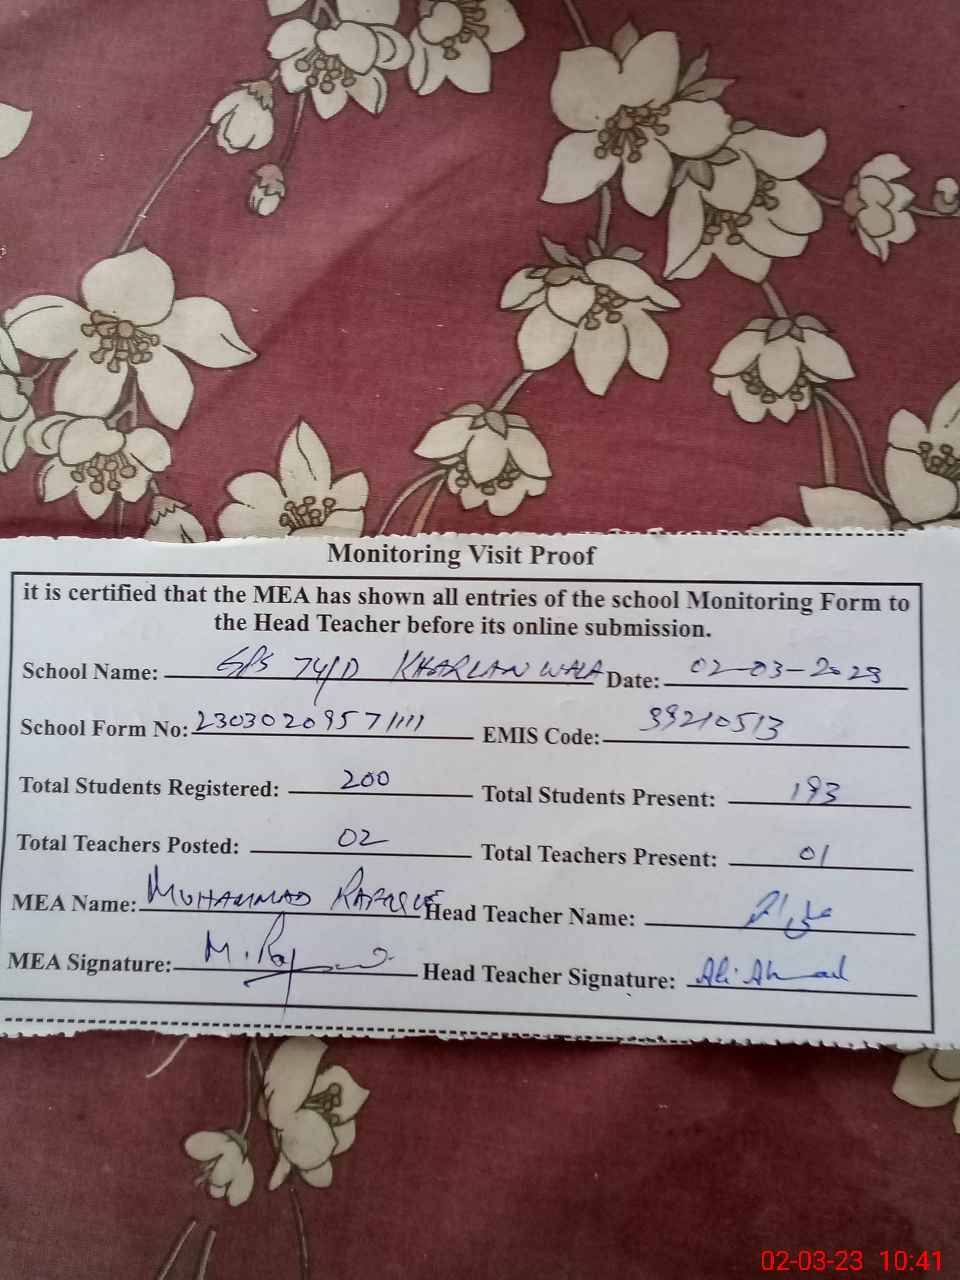 Monitoring Visit Proof
it is certified that the MEA has shown all entries of the school Monitoring Form to
the Head Teacher before its online submission.
School Name: GPS 74/D KHARLAN WALA Date: 02-03-2023
School Form No: 2303020957 1111 EMIS Code: 39210513
Total Students Registered: 200 Total Students Present: 193
Total Teachers Posted: 02 Total Teachers Present: 01
MEA Name: MUHAMMAD RAFIQUE Head Teacher Name: علی احمد
MEA Signature: M. Head Teacher Signature: Ali Ahmad
02-03-23 10:41